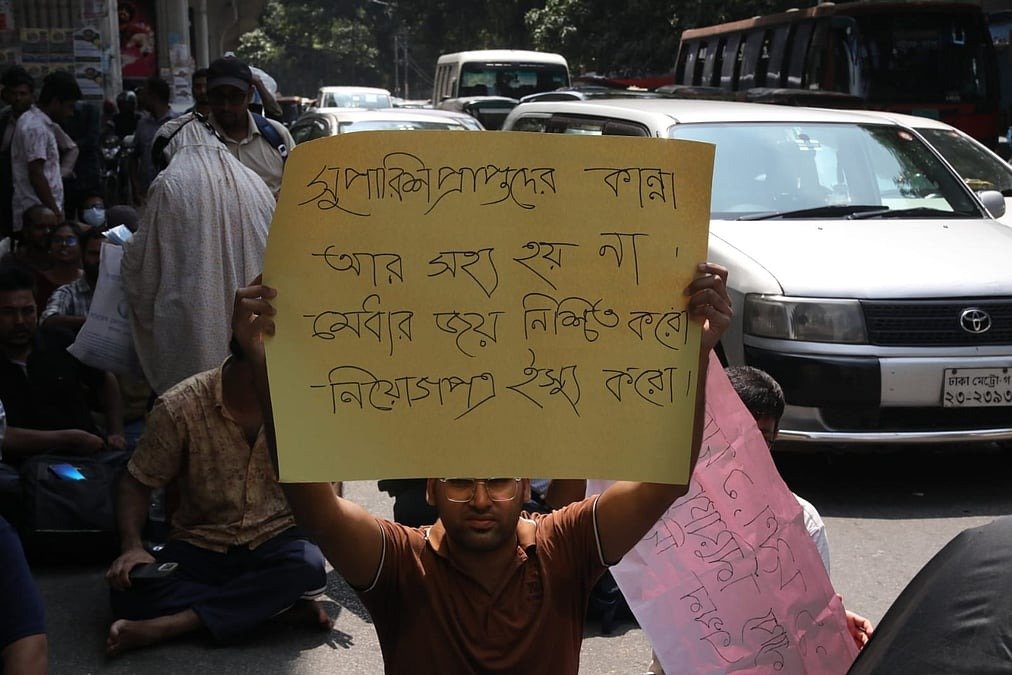 সুপারিশ প্রাপ্তদের কান্না
আর সহ্য হয় না।
মেধার জয় নিশ্চিত করো
নিয়োগপত্র ইস্যু করো।
ঢাকা মেট্রো-গ
২৩-২৩৯৩